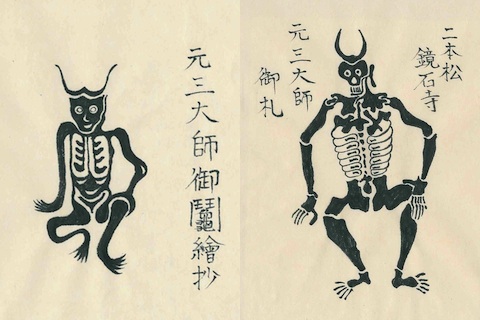 元三大師御鬮繪抄
二本松
鏡石寺
元三大師
御札